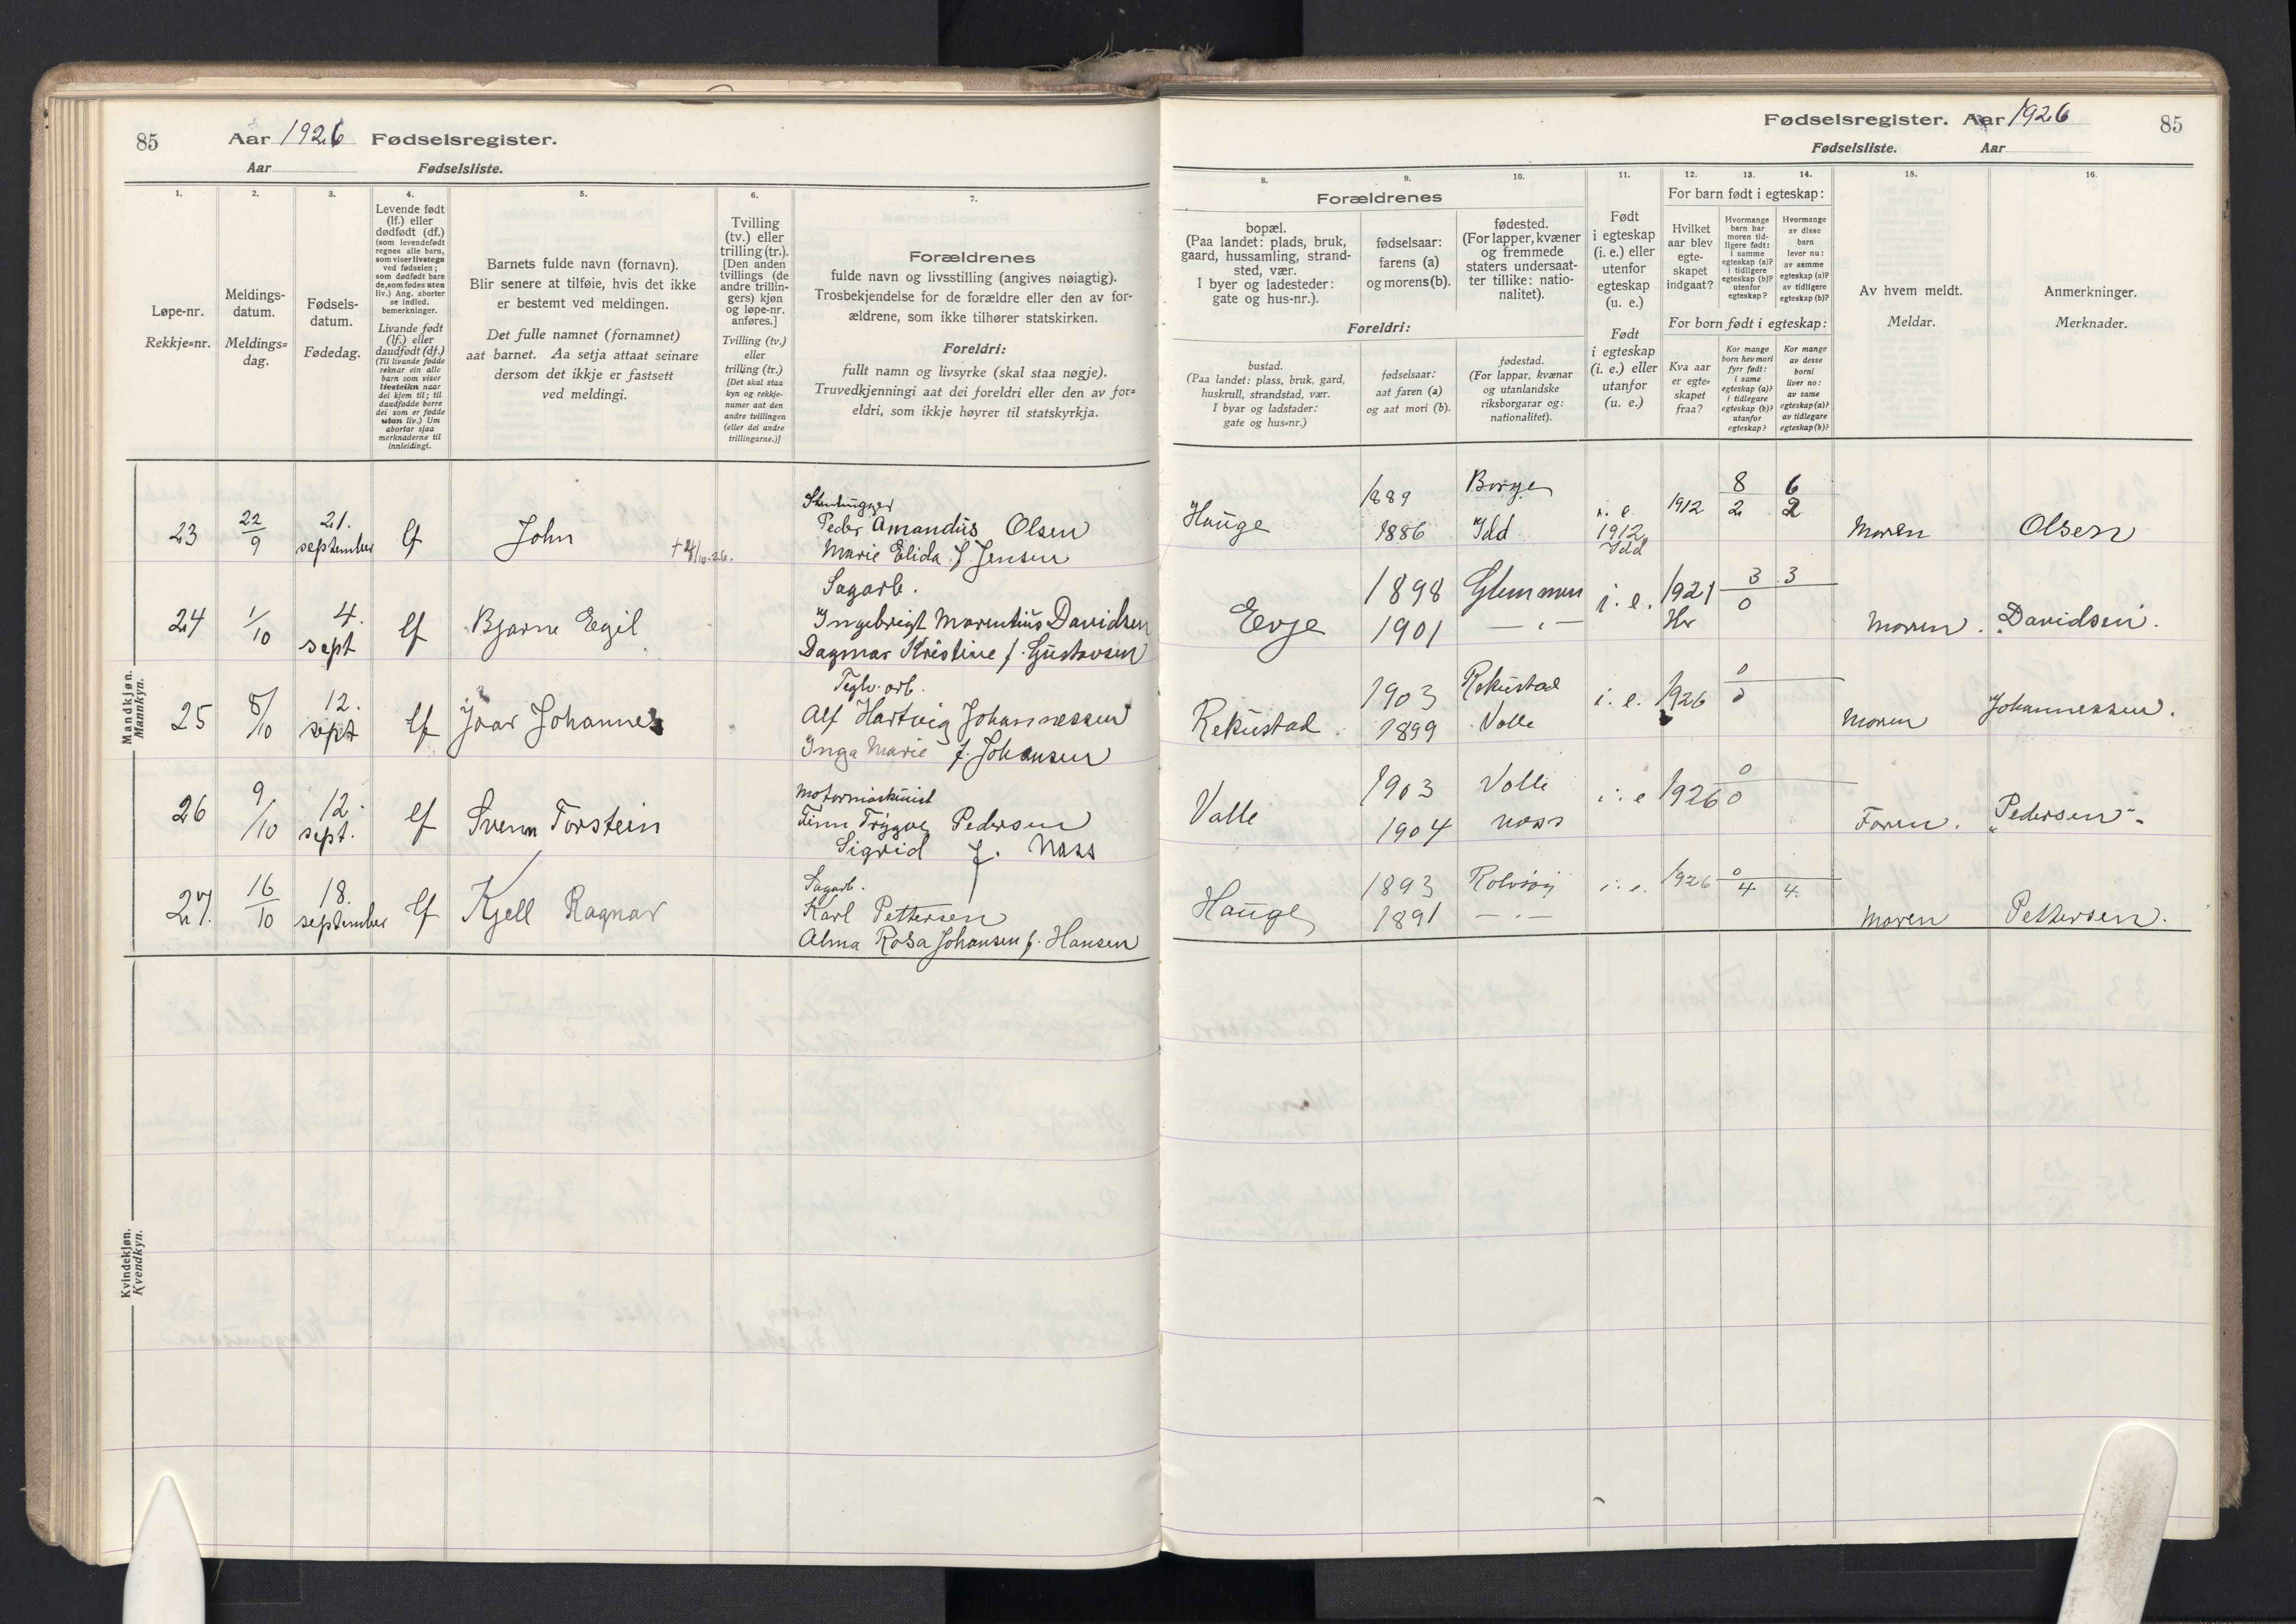 85 Aar 1926 Fødselsregister.
Aar Fødselsliste.
1. 2. 3. 4. 5. 6. 7.
Løpe-nr.
Rekkje=nr.
Meldings-
datum.
Meldings=
dag.
Fødsels-
datum.
Fødedag.
Levende født
(lf.) eller
dødfødt (df.)
(som levendefødt
regnes alle barn,
som viser livstegn
ved fødselen;
som dødfødt bare
de, som fødes uten
liv.) Ang. aborter
se indled.
bemerkninger.
Livande født
(lf.) eller
daudfødt (df.)
(Til livande fødde
reknar ein alle
barn som viser
livsteikn naar
dei kjem til; til
daudfødde berre
dei som er fødde
utan liv.) Um
abortar sjaa
merknaderne til
innleidingi.
Barnets fulde navn (fornavn).
Blir senere at tilføie, hvis det ikke
er bestemt ved meldingen.
Det fulle namnet (fornamnet)
aat barnet. Aa setja attaat seinare
dersom det ikkje er fastsett
ved meldingi.
Tvilling
(tv.) eller
trilling (tr.).
[Den anden
tvillings (de
andre trillin-
gers) kjøn
og løpe-nr.
anføres.]
Tvilling (tv.)
eller
trilling (tr.)
[Det skal staa
kyn og rekkje-
numer aat den
andre tvillingen
(eller dei andre
trillingarne.)]
Forældrenes
fulde navn og livsstilling (angives nøiagtig).
Trosbekjendelse for de forældre eller den av for-
ældrene, som ikke tilhører statskirken.
Foreldri:
fullt namn og livsyrke (skal staa nøgje).
Truvedkjenningi aat dei foreldri eller den av for=
eldri, som ikkje høyrer til statskyrkja.
Mandkjøn.
Mannkyn.
23 22/9 21. september lf John +4/10-26.
Stenhugger
Peder Amandus Olsen
Marie Elida f Jensen
24 1/10 4. sept lf Bjarne Egil
Sagarb.
Ingebrigt Marentius Davidsen
Dagmar Kristine f. Gustavsen
25 8/10 12. sept lf Ivar Johannes
Teglv. arb.
Alf Hartvig Johannessen
Inga Marie f. Johansen
26 9/10 12. sept. lf Svenn Torstein
Motormaskinist
Finn Trygve Pedersen
Sigrid f. Næss
27. 16/10 18. september lf Kjell Ragnar
Sagarb.
Karl Pettersen
Alma Rosa Johansen f. Hansen
Kvindekjøn.
Kvendkyn.
Fødselsregister. Aar 1926 85
Fødselsliste. Aar
8. 9. 10. 11. 12. 13. 14. 15. 16.
Forældrenes
bopæl.
(Paa landet: plads, bruk,
gaard, hussamling, strand-
sted, vær.
I byer og ladesteder:
gate og hus-nr.).
fødselsaar:
farens (a)
og morens (b).
fødested.
(For lapper, kvæner
og fremmede
staters undersaat-
ter tillike: natio-
nalitet).
Foreldri:
bustad.
(Paa landet: plass, bruk, gard,
huskrull, strandstad, vær.
I byar og ladstader:
gate og hus=nr.)
fødselsaar:
aat faren (a)
og aat mori (b).
fødestad.
(For lappar, kvænar
og utanlandske
riksborgarar og:
nationalitet).
Født
i egteskap
(i. e.) eller
utenfor
egteskap
(u. e.)
Født
i egteskap
(i. e.) eller
utanfor
(u. e.)
For barn født i egteskap:
Hvilket
aar blev
egte-
skapet
indgaat?
Hvormange
barn har
moren tid-
ligere født:
i samme
egteskap (a)?
i tidligere
egteskap (b)?
utenfor
egteskap?
Hvormange
av disse
barn
lever nu:
av samme
egteskap (a)?
av tidligere
egteskap (b)?
For born født i egteskap:
Kva aar
er egte=
skapet
fraa?
Kor mange
born hev mori
fyrr født:
i same
egteskap (a)?
i tidlegare
egteskap (b)?
utanfor
egteskap?
Kor mange
av desse
borni
liver no:
av same
egteskap (a)?
av tidlegare
egteskap (b)?
Av hvem meldt.
Meldar.
Anmerkninger.
Merknader.
Hauge 1889 Borge i. e. 1912 8 6
1886 Idd 1912 Idd 2 2 Moren Olsen
Evje 1898 Glemmen i. e. 1921 3 3
1901 — " — 0 Moren. Davidsen.
Rekustad. 1903 Rekustad i. e. 1926 0
1899 Valle 0 Moren Johannessen.
Valle 1903 Valle i. e 1926 0
1904 Næss 0 Faren. Pedersen
Hauge 1893 Rolvsøy i. e. 1926 0
1891 — " — 4 4. Moren Pettersen.